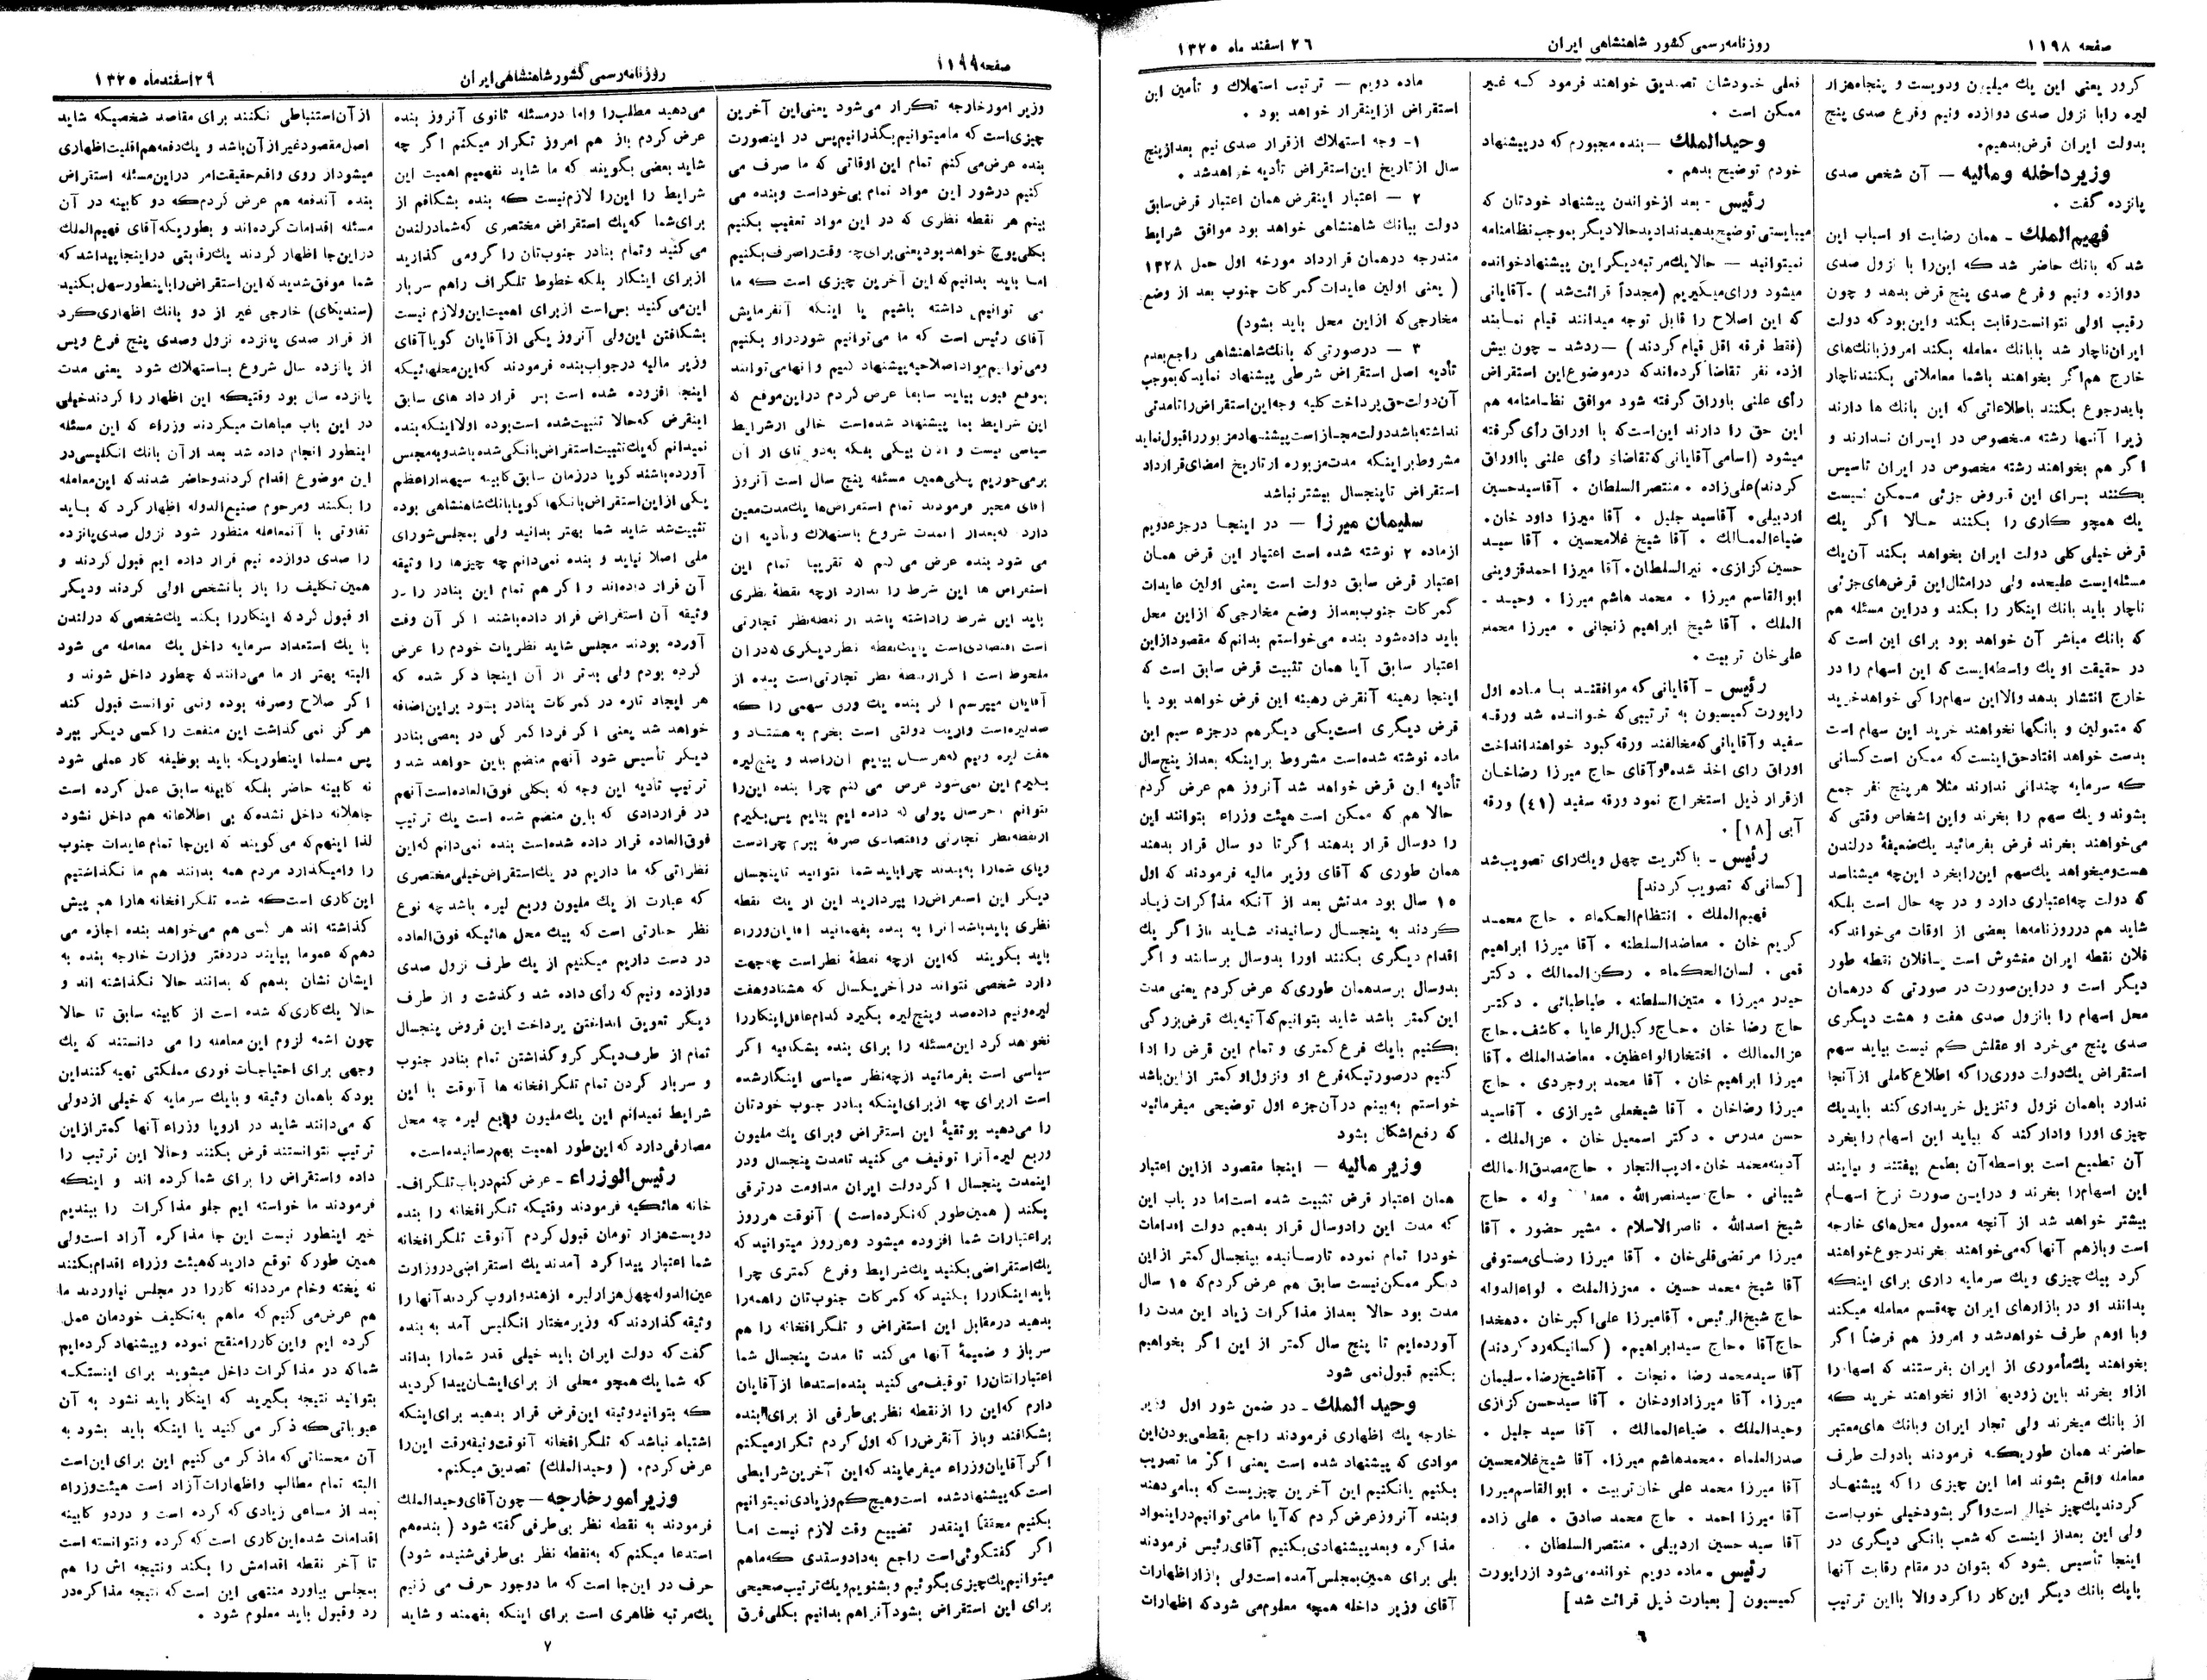 صفحه ۱۱۹۸
روزنامه رسمی کشور شاهنشاهی ایران
۲۶ اسفند ماه ۱۳۲۵
کرور یعنی این یك میلیون ودویست و پنجاه‌هزار
لیره رابا نزول صدی دوازده ونیم وفرع صدی پنج
بدولت ایران قرض‌بدهیم.
وزیرداخله ومالیه — آن شخص صدی
پانزده گفت .
فهیم‌الملك ـ همان رضایت او اسباب این
شد که بانك حاضر شد که این‌را با نزول صدی
دوازده ونیم و فرع صدی پنج قرض بدهد و چون
رقیب اولی نتوانست‌رقابت بکند واین‌بود که دولت
ایران ناچار شد بابانك معامله بکند امروز بانك‌های
خارج هم‌اگر بخواهند باشما معاملاتی بکنند ناچار
باید رجوع بکنند باطلاعاتی که این بانك ها دارند
زیرا آنها رشته مخصوص در ایران ندارند و
اگر هم بخواهند رشته مخصوص در ایران تاسیس
بکنند برای این قروض جزئی ممکن نیست
یك همچو کاری را بکنند حالا اگر یك
قرض خیلی کلی دولت ایران بخواهد بکند آن یك
مسئله‌ایست علیحده ولی درامثال این قرض‌های جزئی
ناچار باید بانك اینکار را بکند و دراین مسئله هم
که بانك مباشر آن خواهد بود برای این است که
در حقیقت او یك واسطه‌ایست که این اسهام را در
خارج انتشار بدهد والااین سهام‌را کی خواهدخرید
که متمولین و بانگها نخواهند خرید این سهام است
بدست خواهد افتاد حق اینست که ممکن است کسانی
که سرمایه چندانی ندارند مثلا هر پنج نفر جمع
بشوند و یك سهم را بخرند واین اشخاص وقتی که
می‌خواهند بخرند فرض بفرمائید یك‌ضعیفهٔ درلندن
هست ومیخواهد یك سهم این‌را بخرد این‌چه میشناسد
که دولت چه اعتباری دارد و در چه حال است بلکه
شاید هم درروزنامه‌ها بعضی از اوقات می‌خواند که
فلان نقطه ایران مغشوش است یا فلان نقطه طور
دیگر است و دراین‌صورت در صورتی که درهمان
محل اسهام را بانزول صدی هفت و هشت دیگری
صدی پنج می‌خرد او عقلش کم نیست بیاید سهم
استقراض یك‌دولت دوری‌را که اطلاع کاملی از آنجا
ندارد باهمان نزول وتنزیل خریداری کند بایدیك
چیزی اورا وادار کند که بیاید این اسهام را بخرد
آن تطمیع است بواسطه آن بطمع بیفتند و بیایند
این اسهام‌را بخرند و دراین صورت نرخ اسهام
بیشتر خواهد شد از آنچه معمول محل‌های خارجه
است وبازهم آنها که‌می‌خواهند بخرند رجوع خواهند
کرد بیك چیزی ویك سرمایه داری برای اینکه
بدانند او در بازارهای ایران چه‌قسم معامله میکند
وبا اوهم طرف خواهدشد و امروز هم فرضاً اگر
بخواهند یك‌مأموری از ایران بفرستند که اسهام را
ازاو بخرند باین زودیها ازاو نخواهند خرید که
از بانك میخرند ولی تجار ایران وبانك های‌معتبر
حاضرند همان طوریکه فرمودند بادولت طرف
معامله واقع بشوند اما این چیزی را که پیشنهاد
کردند یك‌چیز خیال است واگر بشود خیلی خوب‌است
ولی این بعداز اینست که شعب بانکی دیگری در
اینجا تأسیس بشود که بتوان در مقام رقابت آنها
بایك بانك دیگر این‌کار را کرد والا بااین ترتیب
فعلی خودشان تصدیق خواهند فرمود که غیر
ممکن است .
وحیدالملك — بنده مجبورم که در پیشنهاد
خودم توضیح بدهم .
رئیس - بعد از خواندن پیشنهاد خودتان که
میبایستی توضیح بدهید ندادید حالا دیگر بموجب نظامنامه
نمیتوانید — حالا یك‌مرتبه دیگر این پیشنهاد خوانده
میشود ورای‌میگیریم (مجدداً قرائت‌شد ) -آقایانی
که این اصلاح را قابل توجه میدانند قیام نمایند
(فقط فرقه اقل قیام کردند ) — ردشد ـ چون بیش
ازده نفر تقاضا کرده‌اند که درموضوع این استقراض
رأی علنی باوراق گرفته شود موافق نظامنامه هم
این حق را دارند این‌است که با اوراق رأی گرفته
میشود (اسامی آقایانی که تقاضای رأی علنی بااوراق
کردند) علی‌زاده . منتصرالسلطان . آقاسیدحسین
اردبیلی. آقاسید جلیل . آقا میرزا داود خان.
ضیاءالممالك . آقا شیخ غلامحسین . آقا سید
حسین کزازی. نیرالسلطان. آقا میرزا احمدقزوینی
ابوالقاسم میرزا . محمد هاشم میرزا . وحید ـ
الملك . آقا شیخ ابراهیم زنجانی . میرزا محمد
علی‌خان تربیت .
رئیس ـ آقایانی که موافقند با ماده اول
راپورت کمیسیون به ترتیبی که خوانده شد ورقه
سفید و آقایانی که مخالفند ورقه کبود خواهند انداخت
اوراق رای اخذ شده و آقای حاج میرزا رضاخان
ازقرار ذیل استخراج نمود ورقه سفید (۴۱) ورقه
آبی [۱۸] .
رئیس ـ باکثریت چهل ویك‌رای تصویب‌شد
[کسانی که تصویب کردند]
فهیم‌الملك . انتظام‌الحکماء . حاج محمد
کریم خان . معاضدالسلطنه . آقا میرزا ابراهیم
قمی . لسان‌الحکماء . رکن‌الممالك . دکتر
حیدر میرزا . متین‌السلطنه . طباطبائی . دکتر
حاج رضا خان . حاج وکیل‌الرعایا . کاشف. حاج
عزالممالك . افتخارالواعظین. معاضدالملك . آقا
میرزا ابراهیم خان . آقا محمد بروجردی . حاج
میرزا رضاخان . آقا شیخعلی شیرازی . آقاسید
حسن مدرس . دکتر اسمعیل خان . عزالملك .
آدینه‌محمد خان. ادیب‌التجار . حاج مصدق‌الممالك
شیبانی . حاج سیدنصرالله . . حاج
شیخ اسدالله . ناصرالاسلام . مشیر حضور . آقا
میرزا مرتضی‌قلی‌خان . آقا میرزا رضای‌مستوفی
آقا شیخ محمد حسین . معززالملك . لواءالدوله
حاج شیخ‌الرئیس. آقامیرزا علی‌اکبرخان . دهخدا
حاج آقا . حاج سیدابراهیم. (کسانیکه رد کردند)
آقا سیدمحمد رضا . نجات . آقاشیخ‌رضا. سلیمان
میرزا. آقا میرزاداودخان . آقا سیدحسن کزازی
وحیدالملك . ضیاءالممالك . آقا سید جلیل .
صدرالعلماء . محمدهاشم میرزا. آقا شیخ‌غلامحسین
آقا میرزا محمد علی خان تربیت . ابوالقاسم میرزا
آقا میرزا احمد . حاج محمد صادق . علی زاده
آقا سید حسین اردبیلی . منتصرالسلطان .
رئیس . ماده دویم خوانده می‌شود از راپورت
کمیسیون [ بعبارت ذیل قرائت شد ]
ماده دویم — ترتیب استهلاك و تأمین این
استقراض ازاینقرار خواهد بود .
۱ـ وجه استهلاك ازقرار صدی نیم بعدازپنج
سال ازتاریخ این‌استقراض تأدیه خواهدشد .
۲ — اعتبار اینقرض همان اعتبار قرض‌سابق
دولت ببانك شاهنشاهی خواهد بود موافق شرایط
مندرجه درهمان قرارداد مورخه اول حمل ۱۳۲۸
( یعنی اولین عایدات گمرکات جنوب بعد از وضع
مخارجی‌که ازاین محل باید بشود)
۳ — درصورتی‌که بانك‌شاهنشاهی راجع‌بعدم
تأدیه اصل استقراض شرطی پیشنهاد نماید که‌بموجب
آن‌دولت حق پرداخت کلیه وجه‌این‌استقراض‌را تامدتی
نداشته باشد دولت مجازاست پیشنهاد مزبور را قبول نماید
مشروط براینکه مدت‌مزبوره ازتاریخ امضای قرارداد
استقراض تاپنجسال بیشتر نباشد
سلیمان میرزا — در اینجا درجزءدویم
ازماده ۲ نوشته شده است اعتبار این قرض همان
اعتبار قرض سابق دولت است یعنی اولین عایدات
گمرکات جنوب‌بعداز وضع مخارجی‌که ازاین محل
باید داده‌شود بنده می‌خواستم بدانم‌که مقصودازاین
اعتبار سابق آیا همان تثبیت قرض سابق است که
اینجا رهینه آنقرض رهینه این قرض خواهد بود یا
قرض دیگری است یکی دیگرهم درجزء سیم این
ماده نوشته شده‌است مشروط براینکه بعداز پنج‌سال
تأدیه این قرض خواهد شد آنروز هم عرض کردم
حالا هم که ممکن است هیئت وزراء بتوانند این
را دوسال قرار بدهند اگر تا دو سال قرار بدهند
همان طوری که آقای وزیر مالیه فرمودند که اول
۱۵ سال بود مدتش بعد از آنکه مذاکرات زیاد
کردند به پنجسال رسانیدند شاید باز اگر یك
اقدام دیگری بکنند اورا بدوسال برسانند و اگر
بدوسال برسد همان طوری‌که عرض کردم یعنی مدت
این کمتر باشد شاید بتوانیم که آتیه یك قرض بزرگی
بکنیم بایك فرع کمتری و تمام این قرض را ادا
کنیم درصورتیکه فرع او ونزول‌او کمتر از این باشد
خواستم به‌بینم درآن‌جزء اول توضیحی میفرمائید
که رفع‌اشکال بشود
وزیرمالیه — اینجا مقصود ازاین اعتبار
همان اعتبار قرض تثبیت شده است‌اما در باب این
که مدت این رادوسال قرار بدهیم دولت اقدامات
خودرا تمام نموده تارسانیده بپنجسال کمتر ازاین
دیگر ممکن‌نیست سابق هم عرض کردم‌که ۱۵ سال
مدت بود حالا بعداز مذاکرات زیاد این مدت را
آورده‌ایم تا پنج سال کمتر از این اگر بخواهیم
بکنیم قبول‌نمی شود
وحید الملك ـ در ضمن شور اول وزیر
خارجه یك اظهاری فرمودند راجع بقطعی‌بودن‌این
موادی که پیشنهاد شده است یعنی اگر ما تصویب
بکنیم یانکنیم این آخرین چیزیست که بمامی‌دهند
وبنده آنروز عرض کردم که‌آیا مامی‌توانیم دراینمواد
مذاکره وبعد پیشنهادی بکنیم آقای رئیس فرمودند
بلی برای همین بمجلس آمده است ولی بازاراظهارات
آقای وزیر داخله همچه معلوم‌می شود که اظهارات
۶
صفحه ۱۱۹۹
روزنامه رسمی کشور شاهنشاهی ایران
۲۹ اسفندماه ۱۳۲۵
وزیر امورخارجه تکرار می‌شود یعنی‌این آخرین
چیزی‌است که مامیتوانیم بگذرانیم پس در اینصورت
بنده عرض‌می کنم تمام این اوقاتی که ما صرف می
کنیم درشور این مواد تمام بی‌خوداست وبنده می
بینم هر نقطه نظری که در این مواد تعقیب بکنیم
بکلی پوچ خواهد بود یعنی برای چه وقت را صرف بکنیم
اما باید بدانیم که این آخرین چیزی است که ما
می توانیم داشته باشیم یا اینکه آنفرمایش
آقای رئیس است که ما می‌توانیم شوردراو بکنیم
ومی‌توانیم مواد اصلاحیه پیشنهاد کنیم وآنهامی‌توانند
بموقع قبول بیاید سابقا عرض کردم دراین‌موقع که
این شرایط بما پیشنهاد شده‌است خالی ازشرایط
سیاسی نیست و یکی بلکه به‌دو تای از آن
برمی‌خوریم یکی‌همین مسئله پنج سال است آنروز
آقای مخبر فرمودند تمام استقراض‌ها یك‌مدت‌معین
دارد که‌بعداز آنمدت شروع باستهلاك وتأدیه آن
می شود بنده عرض می کنم که تقریبا تمام این
استقراض ها این شرط را ندارد ازچه نقطهٔ نظری
باید این شرط راداشته باشد از نقطه‌نظر تجارتی
است اقتصادی‌است یایك‌نقطه نظردیگری که‌درآن
ملحوظ است اگر از نقطه نظر تجارتی‌است بنده از
آقایان میپرسم اگر بنده یك ورق سهمی را که
صدلیره‌است وازیك دولتی است بخرم به هشتاد و
هفت لیره ونیم که‌هرسال بیایم آن‌راصد و پنج‌لیره
بگیرم این نمی‌شود عرض می کنم چرا بنده این‌را
نتوانم آخرسال پولی که داده ایم بیایم پس‌بگیرم
ازنقطه‌نظر تجارتی واقتصادی صرفهٔ ببرم چرادست
وپای شمارا به‌بندند چراباید شما نتوانید تاپنجسال
دیگر این استقراض‌را بپردازید این از یك نقطه
نظری بایدباشد آنرا به بنده بفهمانید آقایان‌وزراء
باید بگویند که‌این ازچه نقطهٔ نظراست چه‌جهت
دارد شخصی نتواند درآخریکسال که هشتادوهفت
لیره‌ونیم داده‌صد وپنج‌لیره بگیرد کدام‌عاقل اینکاررا
نخواهد کرد این‌مسئله را برای بنده بشکافید اگر
سیاسی است بفرمائید ازچه‌نظر سیاسی اینکارشده
است ازبرای چه ازبرای‌اینکه بنادر جنوب خودتان
را می‌دهید بوثقیهٔ این استقراض وبرای یك ملیون
وربع لیره‌آنرا توقیف می کنید تامدت پنجسال ودر
اینمدت پنجسال اگردولت ایران مداومت درترقی
بکند ( همین‌طور که‌نکرده‌است ) آنوقت هرروز
براعتبارات شما افزوده میشود وهرروز میتوانید که
یك‌استقراضی‌بکنید یك‌شرایط وفرع کمتری چرا
باید اینکاررا بکنید که گمرکات جنوب‌تان راهمه‌را
بدهید درمقابل این استقراض و تلگرافخانه را هم
سرباز و ضمیمهٔ آنها می کند تا مدت پنجسال شما
اعتباراتتان‌را توقیف‌می کنید بنده‌استدعا ازآقایان
دارم که‌این را ازنقطه نظر بی‌طرفی از برای بنده
بشکافند وباز آنقرض‌را که اول کردم تکرارمیکنم
اگرآقایان‌وزراء میفرمایند که‌این آخرین شرایطی
است که پیشنهادشده است وهیچ‌کم وزیادی نمیتوانیم
بکنیم محققاً اینقدر تضییع وقت لازم نیست اما
اگر گفتگوئی‌است راجع به‌دادوستدی که‌ماهم
میتوانیم یك‌چیزی بگوئیم و بشنویم ویك ترتیب‌صحیحی
برای این استقراض بشود آنراهم بدانیم بکلی‌فرق
می‌دهید مطلب‌را واما درمسئله ثانوی آنروز بنده
عرض کردم باز هم امروز تکرار میکنم اگر چه
شاید بعضی بگویند که ما شاید نفهمیم اهمیت این
شرایط را این‌را لازم‌نیست که بنده بشکافم از
برای‌شما که‌یك استقراض مختصری که شمادرلندن
می کنید وتمام بنادر جنوب‌تان را گرومی گذارید
ازبرای اینکار بلکه خطوط تلگراف راهم سربار
این‌می کنید بس‌است ازبرای اهمیت‌این ولازم نیست
بشکافتن این‌ولی آنروز یکی ازآقایان گویاآقای
وزیر مالیه درجواب‌بنده فرمودند که‌این‌محلهائیکه
اینجا افزوده شده است بر قرارداد های سابق
اینقرض که‌حالا تثبیت‌شده است‌بوده اولااینکه‌بنده
نمیدانم که‌یك تثبیت‌استقراض بانکی‌شده‌باشد وبه‌مجلس
آورده‌باشند گویا درزمان سابق کابینه سپهداراعظم
یکی ازاین‌استقراض‌بانکها گویابانك‌شاهنشاهی بوده
تثبیت‌شد شاید شما بهتر بدانید ولی بمجلس‌شورای
ملی اصلا نیاید و بنده نمی‌دانم چه چیزها را وثیقه
آن قرار داده‌اند و اگر هم تمام این بنادر را در
وثیقه آن استقراض قرار داده‌باشند اگر آن وقت
آورده بودند مجلس شاید نظریات خودم را عرض
کرده بودم ولی بدتر از آن اینجا ذکر شده که
هر ایجاد تازه در گمرکات بنادر بشود براین‌اضافه
خواهد شد یعنی اگر فردا گمرکی در بعضی بنادر
دیگر تأسیس شود آنهم منضم باین خواهد شد و
ترتیب تأدیه این وجه که بکلی فوق‌العاده‌است آنهم
در قراردادی که باین منضم شده است یك ترتیب
فوق‌العاده قرار داده شده‌است بنده نمی‌دانم که‌این
نظراتی که ما داریم در یك‌استقراض‌خیلی‌مختصری
که عبارت از یك ملیون وربع لیره باشد چه نوع
نظر حیارتی است که بیك محل هائیکه فوق‌العاده
در دست داریم میکنیم از یك طرف نزول صدی
دوازده ونیم‌که رأی داده شد و گذشت و از طرف
دیگر تعویق انداختن پرداخت این قروض پنجسال
تمام از طرف‌دیگر گروگذاشتن تمام بنادر جنوب
و سربار کردن تمام تلگرافخانه ها آنوقت با این
شرایط نمیدانم این یك‌ملیون وربع لیره چه محل
مصارفی‌دارد که این‌طور اهمیت بهم‌رسانیده‌است.
رئیس‌الوزراء ـ عرض کنم درباب تلگراف‌ـ
خانه هائکیه فرمودند وقتیکه تلگرافخانه را بنده
دویست‌هزار تومان قبول کردم آنوقت تلگرافخانه
شما اعتبار پیدا کرد آمدند یك استقراضی‌دروزارت
عین‌الدوله چهل‌هزارلیره ازهندواروپ کردند آنها را
وثیقه گذاردند که وزیرمختار انگلیس آمد به بنده
گفت که دولت ایران باید خیلی قدر شمارا بداند
که شما یك همچو محلی از برای ایشان‌پیدا کردید
که بتوانیدوثیقه این‌قرض قرار بدهید برای‌اینکه
اشتباه نباشد که تلگرافخانه آنوقت‌وثیقه‌رفت این‌را
عرض کردم. ( وحیدالملك) تصدیق میکنم.
وزیرامورخارجه — چون‌آقای وحیدالملك
فرمودند به نقطه نظر بی‌طرفی گفته شود ( بنده‌هم
استدعا میکنم که به‌نقطه نظر بی‌طرفی‌شنیده شود)
حرف در این‌جا است که ما دوجور حرف می زنیم
یك‌مرتبه ظاهری است برای اینکه بفهمند و شاید
از آن‌استنباطی نکنند برای مقاصد شخصیکه شاید
اصل مقصودغیرازآن‌باشد و یك‌دفعه‌هم‌اقلیت‌اظهاری
میشوداز روی واقع‌حقیقت‌امر دراین‌مسئله استقراض
بنده آندفعه هم عرض کردم‌که دو کابینه در آن
مسئله اقدامات کرده‌اند و بطوریکه‌آقای فهیم‌الملك
دراین‌جا اظهار کردند یك‌رقابتی دراینجاپیداشد که
شما موفق‌شدید که این‌استقراض‌را باینطورسهل بکنید
(سندیکای) خارجی غیر از دو بانك اظهاری‌کرد
از قرار صدی پانزده نزول وصدی پنج فرع وپس
از پانزده سال شروع باستهلاك شود یعنی مدت
پانزده سال بود وقتیکه این اظهار را کردندخیلی
در این باب مباهات میکردند وزراء که این مسئله
اینطور انجام داده شد بعد از آن بانك انگلیسی‌در
این موضوع اقدام کردند وحاضر شدند که این‌معامله
را بکنند ومرحوم صنیع‌الدوله اظهار کرد که باید
تفاوتی با آنمعامله منظور شود نزول صدی‌پانزده
را صدی دوازده نیم قرار داده ایم قبول کردند و
همین تکلیف را باز بانشخص اولی کردند ودیگر
او قبول کرد که اینکاررا بکند یك‌شخصی‌که درلندن
با یك استعداد سرمایه داخل یك معامله می شود
البته بهتر از ما می‌دانند که چطور داخل شوند و
اگر صلاح وصرفه بوده ونمی توانست قبول کند
هرگز نمی گذاشت این منفعت راکسی دیگر ببرد
پس مسلما اینطوریکه باید بوظیفه کار عملی شود
نه کابینه حاضر بلکه کابینه سابق عمل کرده است
جاهلانه داخل نشده‌که بی اطلاعانه هم داخل نشود
لذا اینهم‌که می‌گویند که این‌جا تمام عایدات جنوب
را وامیگذارد مردم همه بدانند هم ما نگذاشتیم
این‌کاری است‌که شده تلگرافخانه هارا هم پیش
گذاشته اند هر کسی هم می‌خواهد بنده اجازه می
دهم‌که عموما بیایند دردفتر وزارت خارجه بنده به
ایشان نشان بدهم که بدانند حالا نگذاشته اند و
حالا یك‌کاری‌که شده است از کابینه سابق تا حالا
چون اشمه لزوم این‌معامله را می دانستند که یك
وجهی برای احتیاجات فوری مملکتی تهیه کنند این
بودکه باهمان وثیقه و بایك سرمایه که خیلی ازدولی
که می‌دانند شاید در اروپا وزراء آنها کمترازاین
ترتیب نتوانستند قرض بکنند وحالا این ترتیب را
داده واستقراض را برای شما کرده اند و اینکه
فرمودند ما خواسته ایم جلو مذاکرات را ببندیم
خیر اینطور نیست این جا مذاکره آزاد است‌ولی
همین طورکه توقع دارید که‌هیئت وزراء اقدام‌بکنند
نه پخته وخام مرددانه کاررا در مجلس نیاوردند ما
هم عرض‌می کنیم که ماهم به‌تکلیف خودمان عمل
کرده ایم واین کاررامنقح نموده وپیشنهاد کرده‌ایم
شماکه در مذاکرات داخل میشوید برای اینستکه
بتوانید نتیجه بگیرید که اینکار باید نشود به آن
عیوباتی‌که ذکر می کنید یا اینکه باید بشود به
آن محسناتی‌که ماذکر می کنیم این برای این‌است
البته تمام مطالب واظهارات‌آزاد است هیئت‌وزراء
بعد از مساعی زیادی که کرده است و دردو کابینه
اقدامات شده‌این‌کاری است‌که کرده ونتوانسته است
تا آخر نقطه اقدامش را بکند ونتیجه اش را هم
بمجلس بیاورد منتهی این است‌که نتیجه مذاکره‌در
رد وقبول باید معلوم شود .
۷